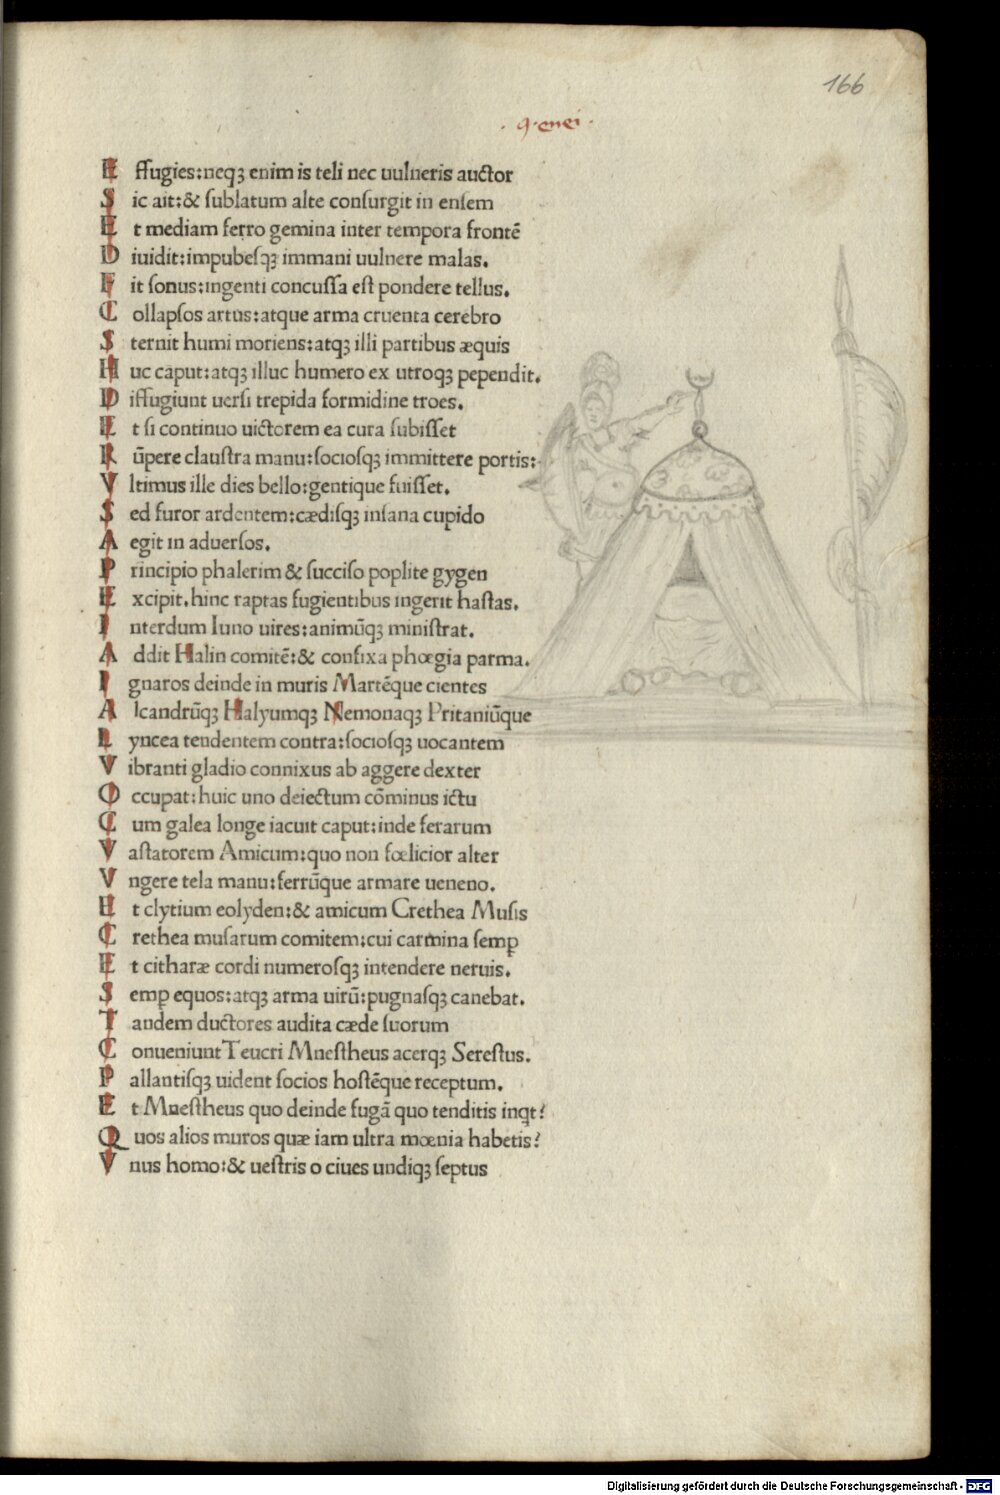 166
· 9 · enei ·
E ffugies:neqꝫ enim is teli nec uulneris auctor
S ic ait:& ſublatum alte conſurgit in enſem
E t mediam ferro gemina inter tempora frontē
D iuidit:impubeſqꝫ immani uulnere malas.
F it ſonus:ingenti concuſſa eſt pondere tellus.
C ollapſos artus:atque arma cruenta cerebro
S ternit humi moriens:atqꝫ illi partibus æquis
H uc caput:atqꝫ illuc humero ex utroqꝫ pependit.
D iffugiunt uerſi trepida formidine troes.
E t ſi continuo uictorem ea cura ſubiſſet
R ūpere clauſtra manu:ſocioſqꝫ immittere portis:
V ltimus ille dies bello:gentique fuiſſet.
S ed furor ardentem:cædiſqꝫ inſana cupido
A egit in aduerſos.
P rincipio phalerim & ſucciſo poplite gygen
E xcipit.hinc raptas fugientibus ingerit haſtas.
I nterdum Iuno uires:animūqꝫ miniſtrat.
A ddit Halin comitē:& confixa phœgia parma.
I gnaros deinde in muris Martēque cientes
A lcandrūqꝫ Halyumqꝫ Nemonaqꝫ Pritaniūque
L yncea tendentem contra:ſocioſqꝫ uocantem
V ibranti gladio connixus ab aggere dexter
O ccupat:huic uno deiectum cōminus ictu
C um galea longe iacuit caput:inde ferarum
V aſtatorem Amicum:quo non fœlicior alter
V ngere tela manu:ferrūque armare ueneno.
E t clytium eolyden:& amicum Crethea Muſis
C rethea muſarum comitem:cui carmina ſemꝑ
E t citharæ cordi numeroſqꝫ intendere neruis.
S emꝑ equos:atqꝫ arma uirū:pugnaſqꝫ canebat.
T andem ductores audita cæde ſuorum
C onueniunt Teucri Mneſtheus acerqꝫ Sereſtus.
P allantiſqꝫ uident ſocios hoſtēque receptum.
E t Mneſtheus quo deinde fugā quo tenditis inqt?
Q uos alios muros quæ iam ultra mœnia habetis?
V nus homo:& ueſtris o ciues undiqꝫ ſeptus
Digitalisierung gefördert durch die Deutsche Forschungsgemeinschaft - DFG